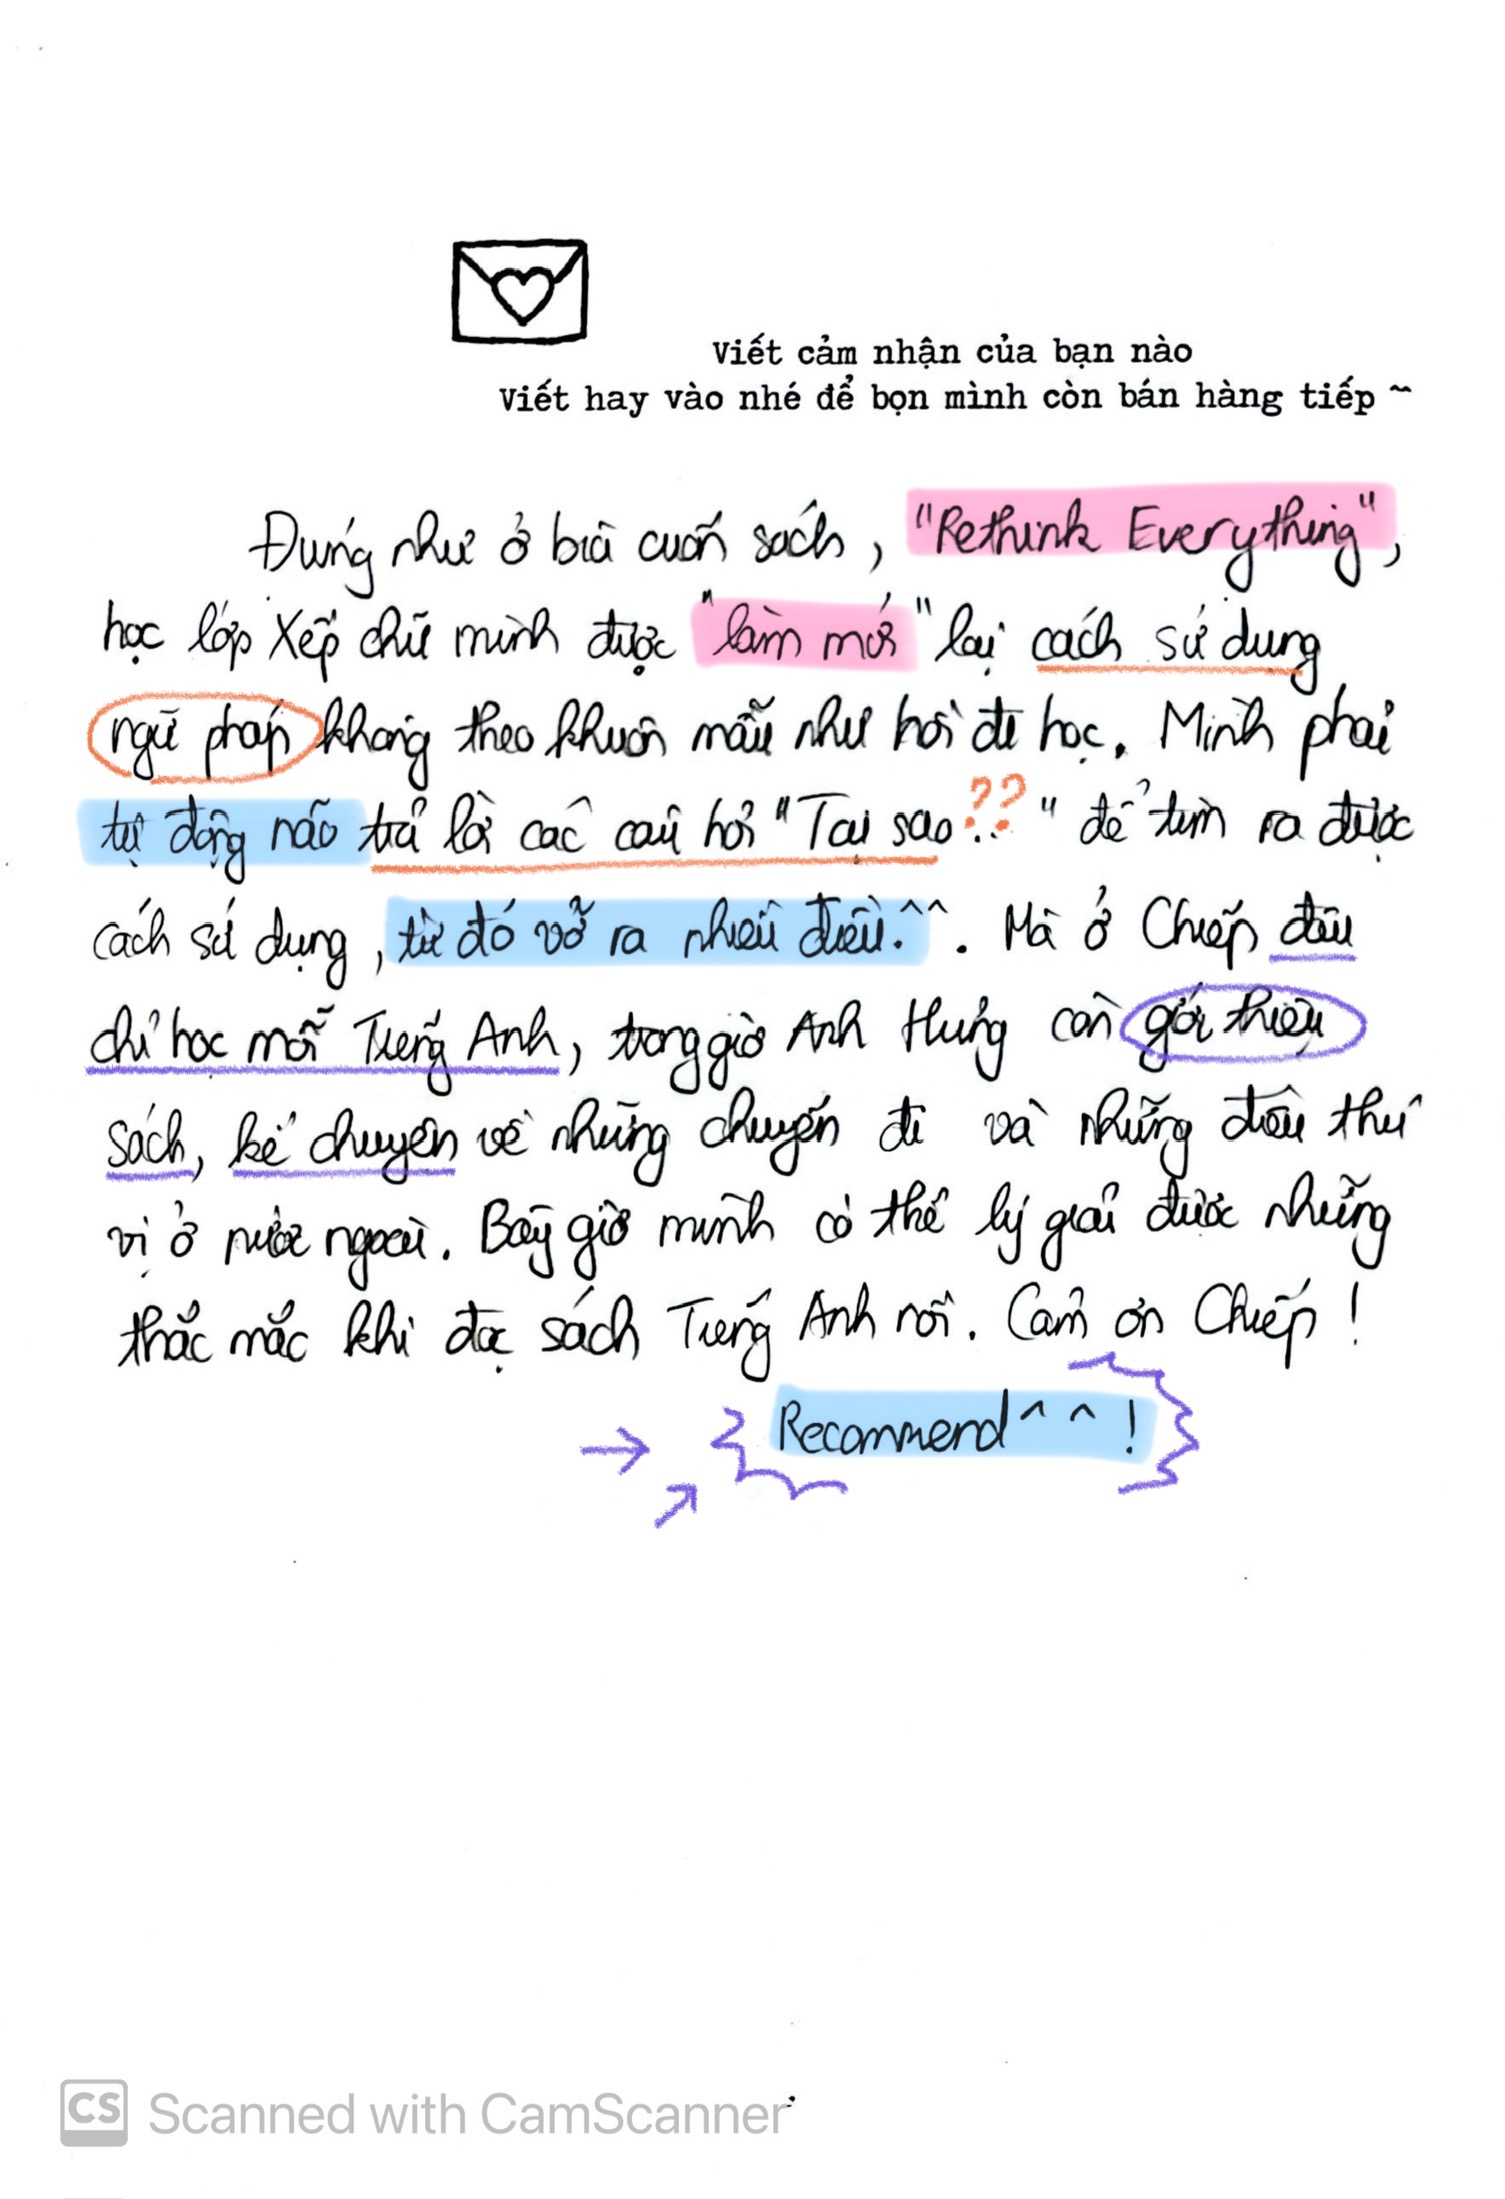 Viết cảm nhận của bạn nào
Viết hay vào nhé để bọn mình còn bán hàng tiếp ~
Đúng như ở bìa cuốn sách, "Rethink Everything",
học lớp Xếp chữ mình được "làm mới" lại cách sử dụng
ngữ pháp không theo khuôn mẫu như hồi đi học. Mình phải
tự động não trả lời các câu hỏi "Tại sao??.." để tìm ra được
cách sử dụng, từ đó vỡ ra nhiều điều.^^. Mà ở Chiếp đâu
chỉ học mỗi Tiếng Anh, trong giờ Anh Hưng còn giới thiệu
sách, kể chuyện về những chuyến đi và những điều thú
vị ở nước ngoài. Bây giờ mình có thể lý giải được những
thắc mắc khi đọc sách Tiếng Anh rồi. Cảm ơn Chiếp!
→ Recommend ^^!
CS Scanned with CamScanner